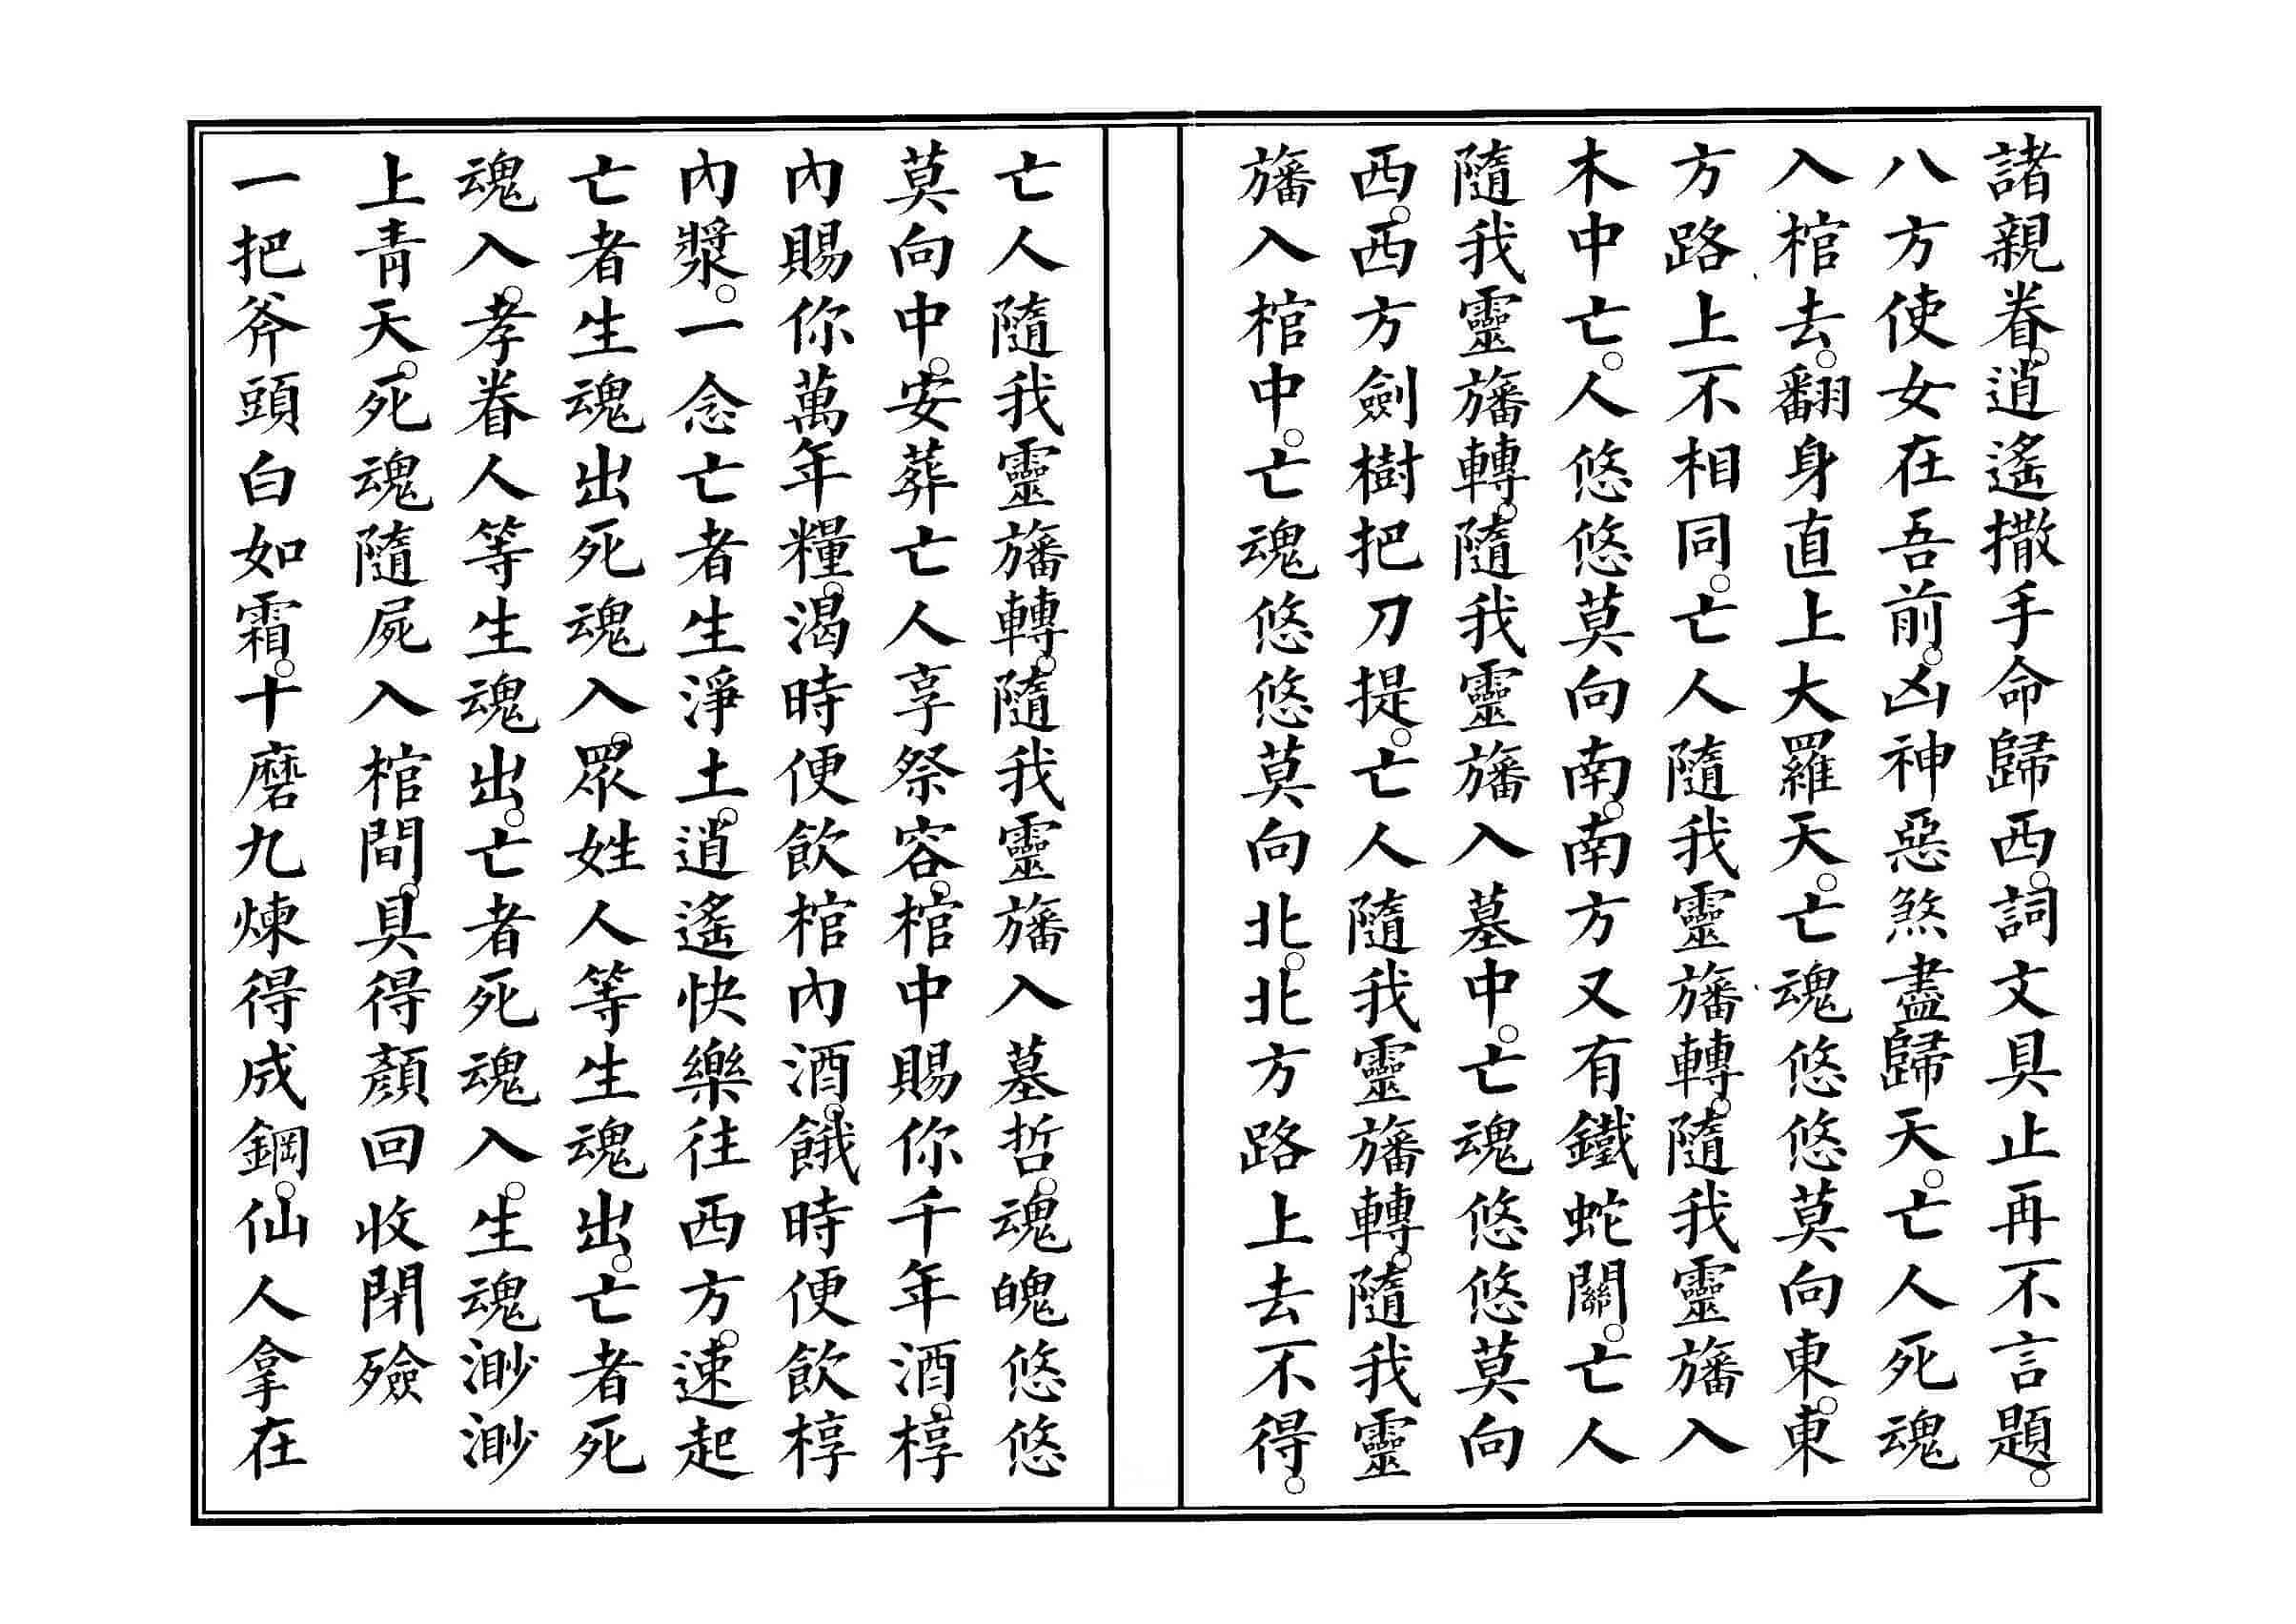 諸親眷。逍遙撒手命歸西。詞文具止再不言題。
八方使女在吾前。凶神惡煞盡歸天。亡人死魂
入棺去。翻身直上大羅天。亡魂悠悠莫向東。東
方路上不相同。亡人隨我靈旛轉。隨我靈旛入
木中亡。人悠悠莫向南。南方又有鐵蛇關。亡人
隨我靈旛轉。隨我靈旛入墓中。亡魂悠悠莫向
西。西方劍樹把刀提。亡人隨我靈旛轉。隨我靈
旛入棺中。亡魂悠悠莫向北。北方路上去不得。
亡人隨我靈旛轉。隨我靈旛入墓哲。魂魄悠悠
莫向中。安葬亡人享祭容。棺中賜你千年酒。椁
內賜你萬年糧。渴時便飲棺內酒。餓時便飲椁
內漿。一念亡者生淨土。逍遙快樂往西方。速起
亡者生魂出死魂入。眾姓人等生魂出。亡者死
魂入。孝眷人等生魂出。亡者死魂入。生魂渺渺
上青天。死魂隨屍入棺間。具得顏回收閉殮
一把斧頭白如霜。十磨九煉得成鋼。仙人拿在